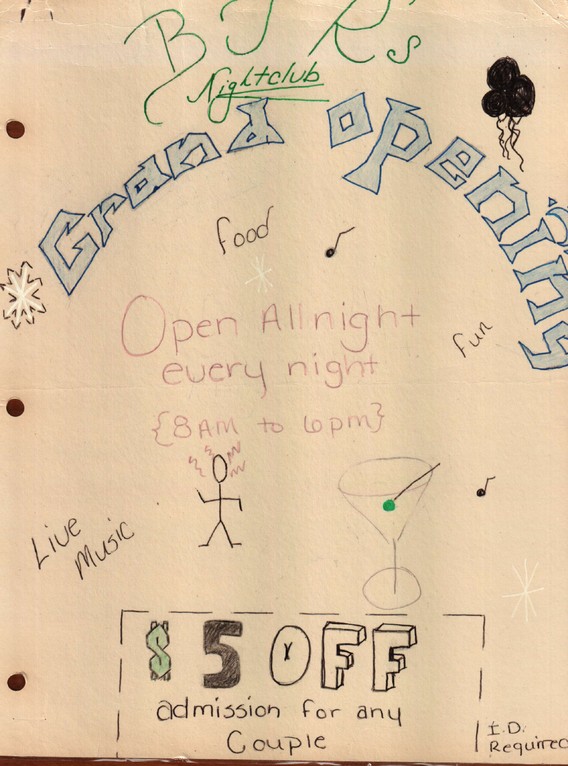 BJR's
Nightclub
Grand Opening
food
fun
Open Allnight
every night
{8AM to 6pm}
Live
Music
$5 OFF
admission for any
Couple
I.D.
Required